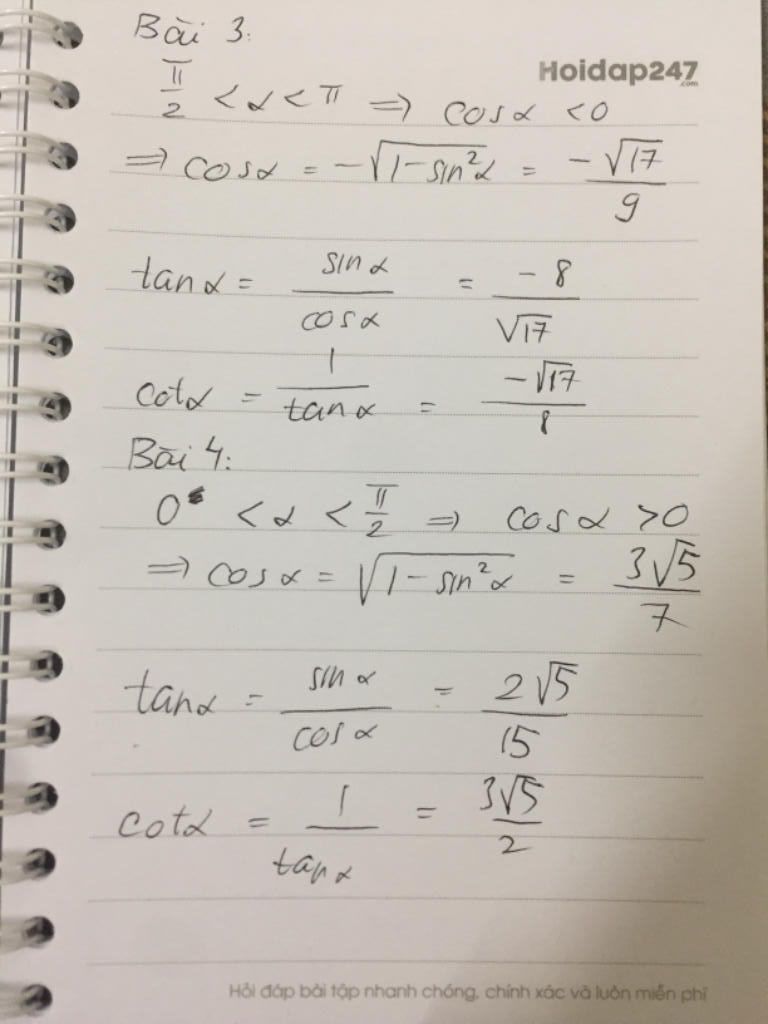 Bài 3:
Hoidap247
.com
π/2 < α < π ⇒ cosα < 0
⇒ cosα = -√(1-sin²α) = -√17/9
tanα = sinα/cosα = -8/√17
cotα = 1/tanα = -√17/8
Bài 4:
0 < α < π/2 ⇒ cosα > 0
⇒ cosα = √(1-sin²α) = 3√5/7
tanα = sinα/cosα = 2√5/15
cotα = 1/tanα = 3√5/2
Hỏi đáp bài tập nhanh chóng, chính xác và luôn miễn phí